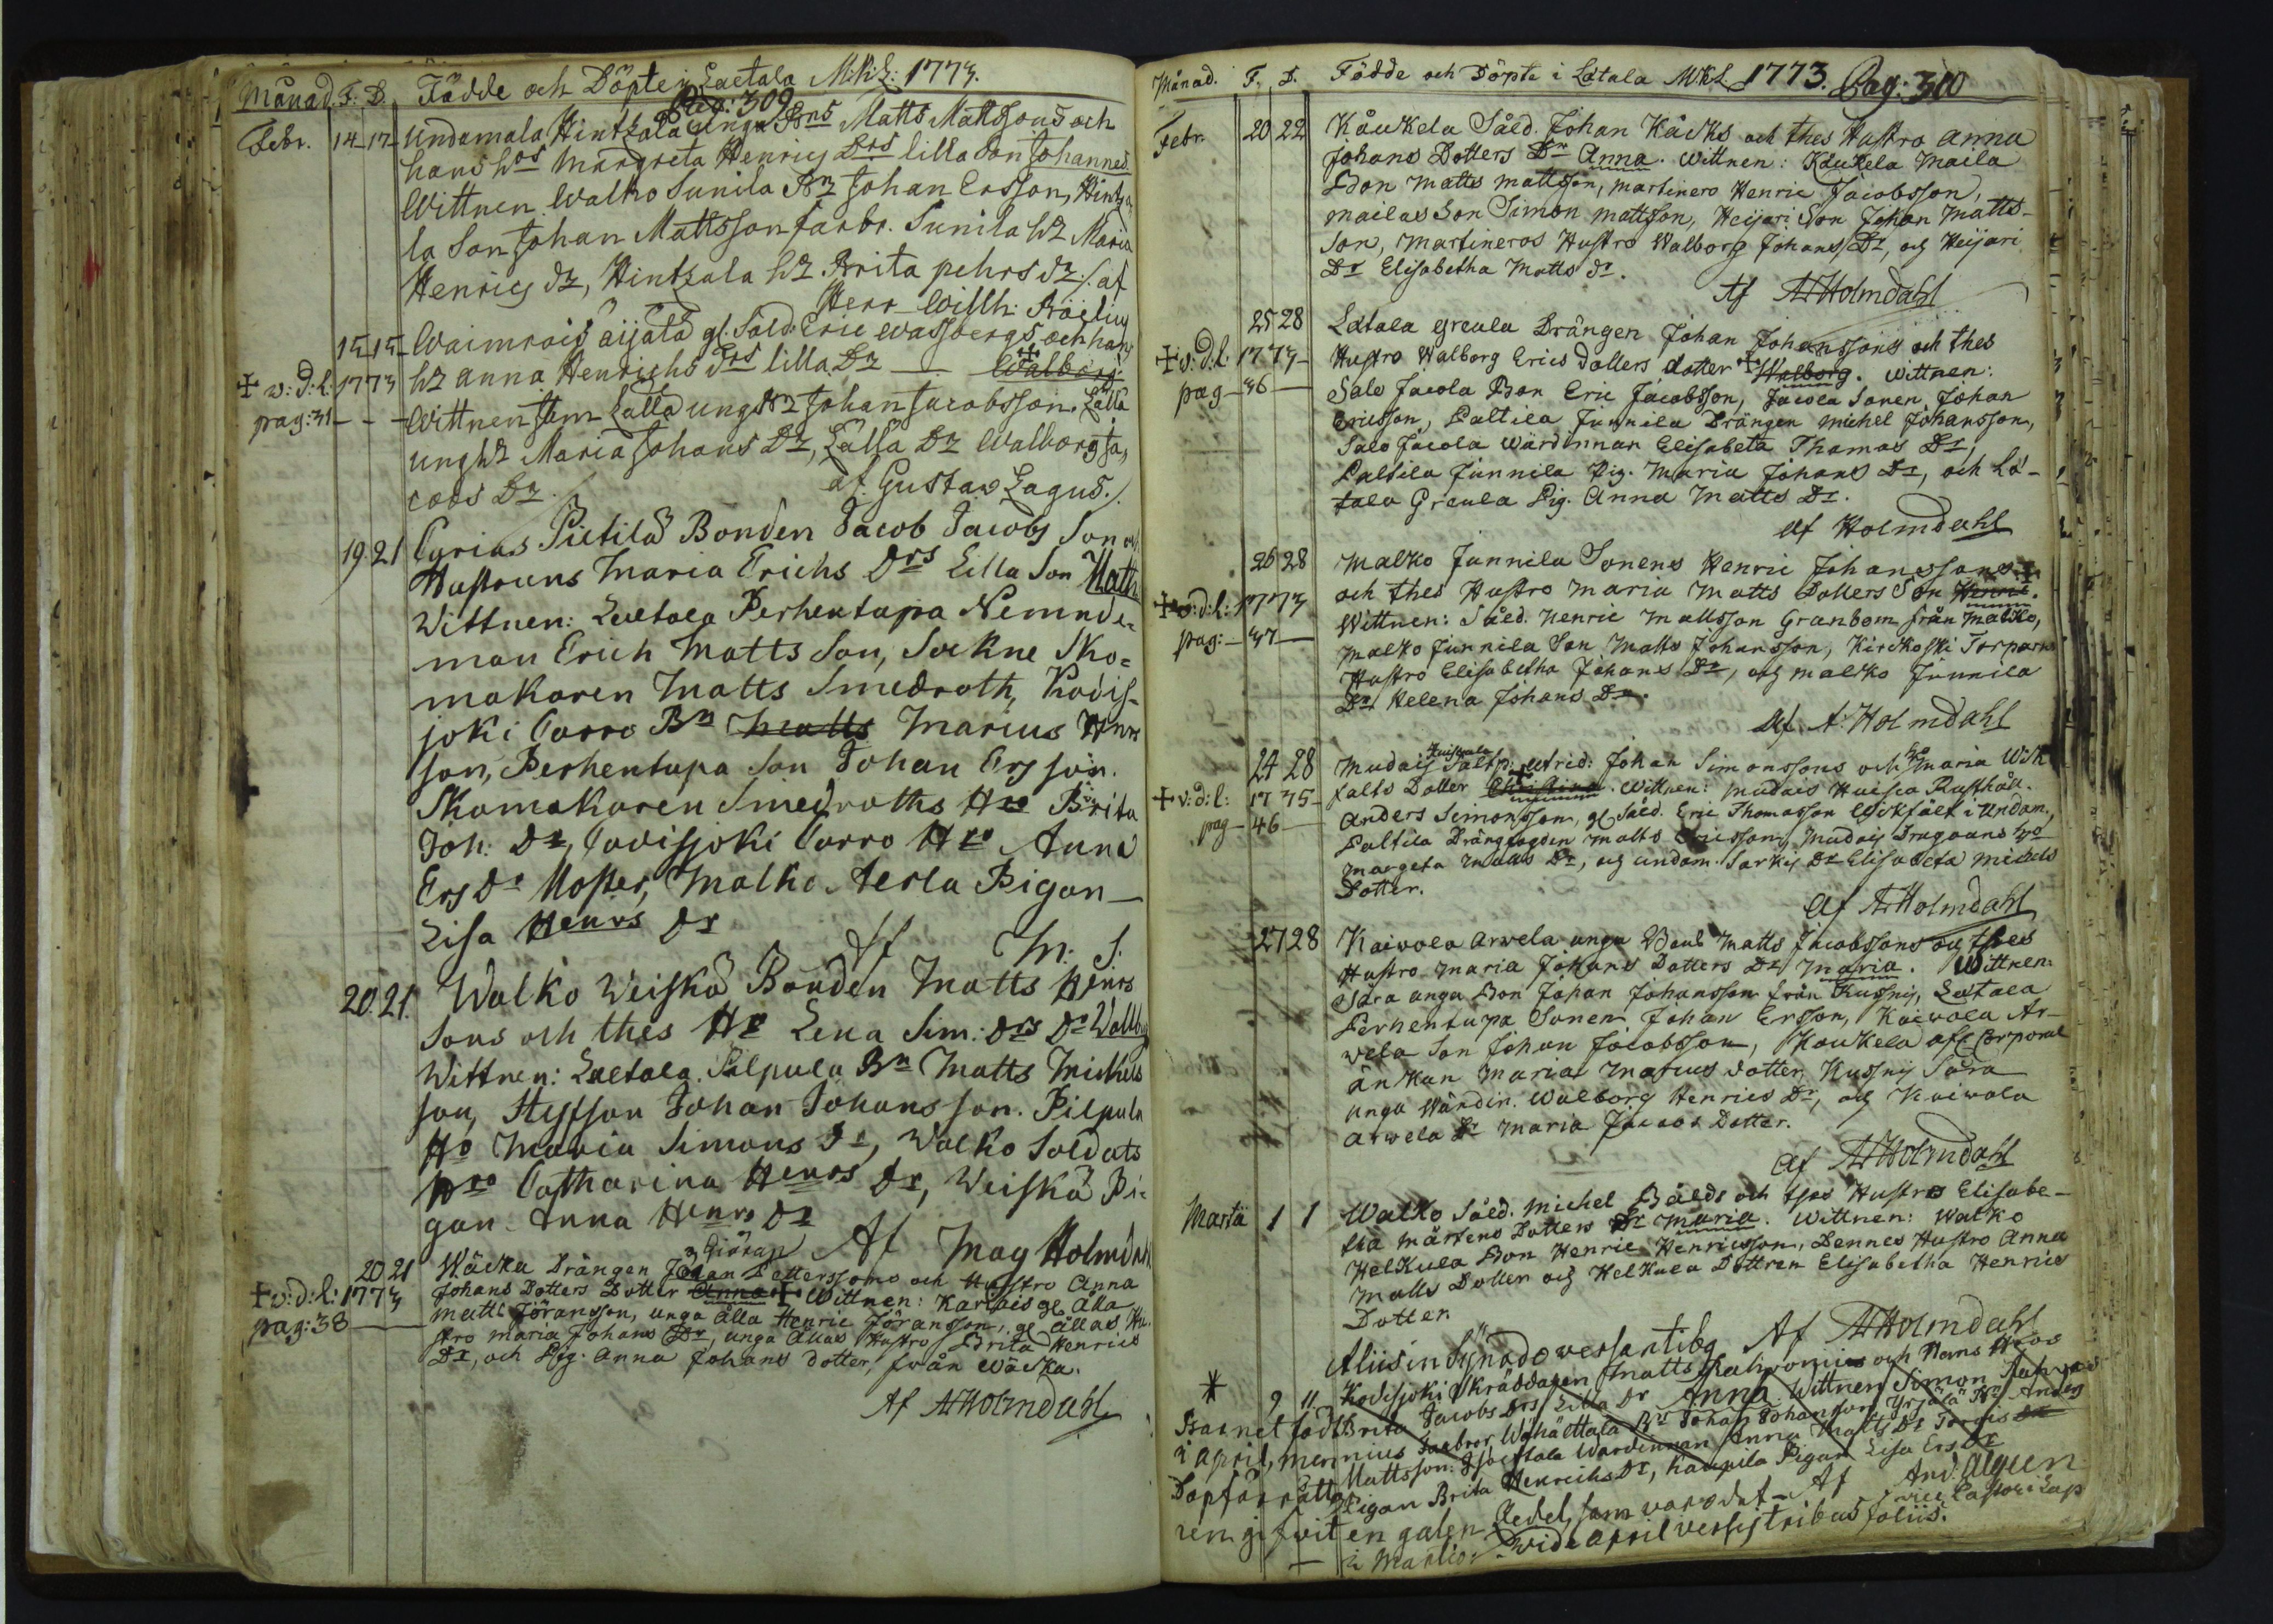 Månad. F. D. Födde och Döpte i Laetala M:K:L: 1773.
Pag: 309
Febr. 14 17 Undamala Hintzala unga Bns Matts Mattsons och
hans hos Margreta Henrics Drs lilla Son Johannes
Wittnen Walko Sunila Bn Johan Ersson, Hintza
la Son Johan Mattsson farbr. Sunila hr Maria
Henrics dr, Hintzala hr Brita pehrs dr /. af
Herr Willh: Böcling
15 15 Waimrois äijälä gl. Sold: Eric Wassbergs och hans
✝ v: d: l: 1773 hr anna Henrichs drs lilla Dr — Walborg
pag: 31 - - - Wittnen Jem Lalla ung Bn Johan Jacobsson. Lälla
ung hr Maria Johans Dr, Lälla Dr Walborg Ja,
cobs Dr / af Gustav Lagus./
19. 21 Cyrias Pietilä Bonden Jacob Jacobs Son och
Hustruns Maria Erichs Drs Lilla Son Matts
Wittnen: Laetala Perhentupa Nemnde=
man Erich Matts Son, Sockne Sko=
makaren Matts Smedroth, Kodis-
joki Corro Bn Matts Marius Henrs
son, Perhentupa Son Johan Ers son.
Skomakaren Smedroths Hro Brita
Joh: Dr, Covisjoki Corro Hro Anna
Ers Dr Moster, Malko Aerla Pigan—
Lisa Henrs Dr
Af M: S:
20. 21. Walko Weiskä Bonden Matts Henrs
Sons och thes Hr Lena Sim: Drs Dr Wallbg
Wittnen: Laetala Pilpula Bn Matts Michels
son, Styfson Johan Johans son. Pilpula
Ho Maria Simons Dr, Walko Soldats
Hro Catharina Henrs Dr, Weiskä Pi=
gan Anna Henrs Dr
Af Mag Holmdahl
Giöran
20 21 Wäcka Drängen Johan Petterssons och Hustro Anna
✝ v: d: l: 1773 Johans Dotters Dotter Anna ✝ Wittnen: Karlais gl Älla
pag: 38 Matts Jöransson, unga Älla Henric Jöransson, gl Ällas Hu,
stro Maria Johans Dr, unga Ällas Hustro Brita Henrics
Dr, och Pig. Anna Johans dotter från Wäcka.
Af AHolmdahl
Månad. F. D. Födde och Döpte i Letala M.K.L. 1773. Pag: 310
Febr. 20 22 Kåukela Såld. Johan Kåcks och thes Hustro Anna
Johans Dotters Dr Anna. Wittnen: Kåukela Maila
Bon Matts Mattsson, Martinero Henric Jacobsson,
Mailas Son Simon Mattsson, Heijari Son Johan Matts-
Son, Martineros Hustro Walborg Johans Dr, og Heijari
Dr Elisabetha Matts dr.
Af AHolmdahl
25 28 Letala Greula Drängen Johan Johanssons och thes
✝ v: d: l: 1773 Hustro Walborg Erics dotters dotter ✝ Walborg. Wittnen:
pag - 36 - Salo Jacola Bon Eric Jacobsson, Jacola Sonen Johan
Ericsson, Paltila Junnila Drängen Michel Johansson,
Salo Jacola Wärdinnan Elisabeta Thomas Dr,
Paltila Junnila Pig. Maria Johans Dr, och Le-
tala Greula Pig. Anna Matts Dr.
Af Holmdahl
26 28 Malko Junnila Sonens Henric Johanssons ✝
✝ v: d: l: 1773 och thes Hustro Maria Matts Dotters Son Henric.
pag: - 37 - Wittnen: Såld. Henric Mattsson Granbom från Malko,
Malko Junnila Son Matts Johansson, Kirckoski Torparns
Hustro Elisabetha Johans Dr, og Malko Junnila
Dr Helena Johans Dr.
Af A: Holmdahl
24 28 Mudais Saltp: utrid: Johan Simonssons och Hro Maria Wik
✝ v: d: l: 1775 falts Dotter Christina. Wittnen: Mudais Huisca Rusthåll.
pag - 46 - Anders Simonsson, gl Såld. Eric Thomasson Wickfält i Undam.,
Paltila Drängfogden Matts Ericsson, Mudais Dragouns Hro
Margeta Matts Dr, og Undam. Sarkis Dr Elisabeta Michels
Dotter.
Af AHolmdahl
27 28 Kaivola Arvela unga Bond Matts Jacobssons og thes
Hustro Maria Johans Dotters Dr Maria. Wittnen:
Såra unga Bon Johan Johansson från Kussnis, Letala
Perhentupa Sonen Johan Ersson, Kaivola Ar-
vela Son Johan Jacobsson, Kaukela aft Corporal
änkan Maria Matius dotter, Kussnis Såra
unga Wärdin. Walborg Henrics Dr, og Kaivola
Arvela Dr Maria Jacobs Dotter.
Af AHolmdahl
Marti 1 1 Walko Såld. Michel Bålds och thes Hustros Elisabe-
tha Mårtens Dotters Dr Maria. Wittnen: Walko
Helkula Bon Henric Henricsson, Dennes Hustro Anna
Matts Dotter og Helkula Dottren Elisabetha Henrics
Dotter
Af AHolmdahl
Aliis in Synado versantibg
* 9 11 Kodisjoki Skräddaren Matts Rahvonius och Hans Hros
Barnet födt Brita Jacobs Drs Lilla Dr Anna. Wittnen Simon Rahvo
i April, men nius Farbror, Wähättala Bn Johan Johansson, Yrjälä Bn Anders
Dopförrätta Mattsson: Hjocttala Wärdinnan Anna Matts Dr Torcis Dr
ren gifvit en galen Pigan Brita Henrichs Dr, Kaupila Pigan Lisa Ers Dr
Cedel, som vore det Af And: Algren
i Martio: vide April versis tribus foliis. vice Pastor i Lap